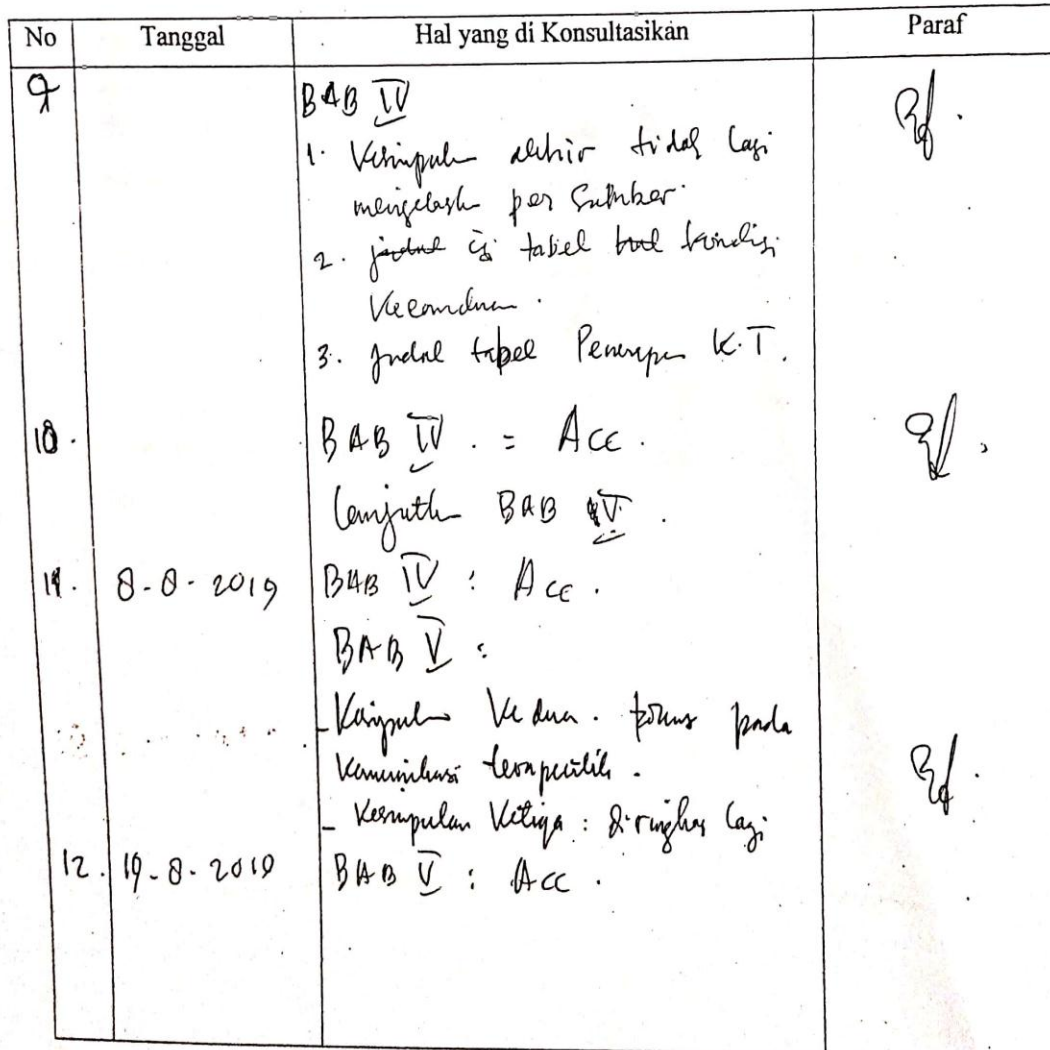 No Tanggal Hal yang di Konsultasikan Paraf
9 BAB IV
1. Kesimpulan akhir tidak lagi
menjelaskan per Sumber.
2. isi tabel kondisi
Kecanduan.
3. Judul tabel Penerapan K.T.
10. BAB IV. = Acc.
Lanjutkan BAB V.
11. 8-8-2019 BAB IV : Acc.
BAB V :
- Kesimpulan Kedua. fokus pada
Komunikasi terapeutik.
- Kesimpulan Ketiga : diringkas lagi
12. 19-8-2019 BAB V : Acc.